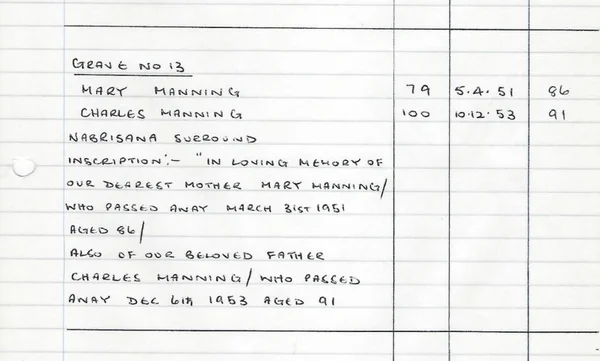 GRAVE NO 13
MARY MANNING 79 5.4.51 86
CHARLES MANNING 100 10.12.53 91
NABRISANA SURROUND
INSCRIPTION:- "IN LOVING MEMORY OF
OUR DEAREST MOTHER MARY MANNING/
WHO PASSED AWAY MARCH 31ST 1951
AGED 86/
ALSO OF OUR BELOVED FATHER
CHARLES MANNING/ WHO PASSED
AWAY DEC 6th 1953 AGED 91